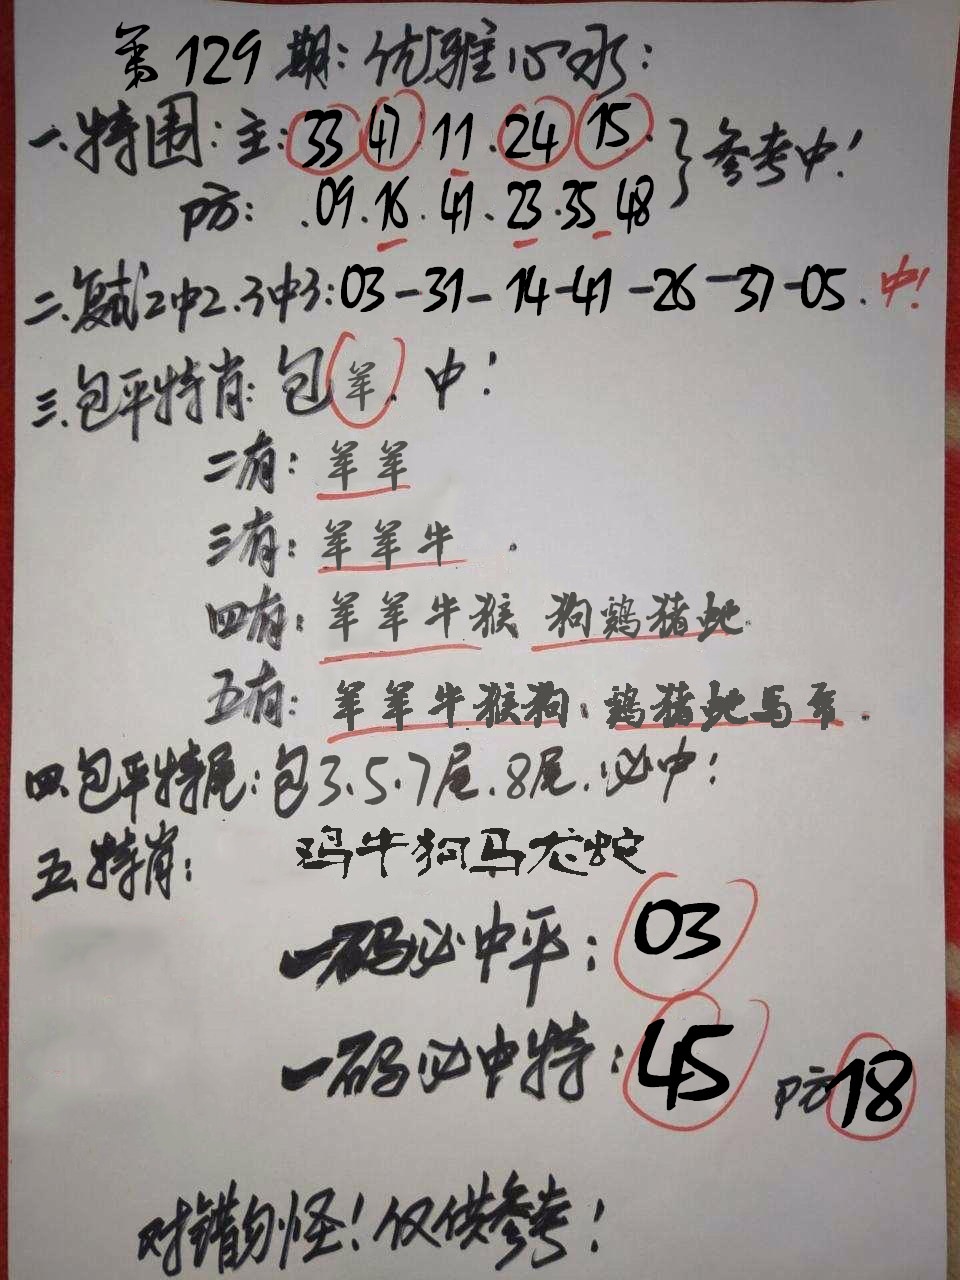 第129期:优雅心水:
一.特围:主:33.47.11.24.15.
防:.09.16.41.23.35.48
}参考中!
二.复式2中2.3中3:03-31-14-41-26-37-05.中!
三.包平特肖:包羊.中!
二有:羊羊
三有:羊羊牛.
四有:羊羊牛猴 狗鸡猪蛇.
五有:羊羊牛猴狗.鸡猪蛇马.
四.包平特尾:包3.5.7尾.8尾.必中!
五.特肖: 鸡牛狗马龙蛇
一码必中平:03
一码必中特:45 防18
对错勿怪!仅供参考!